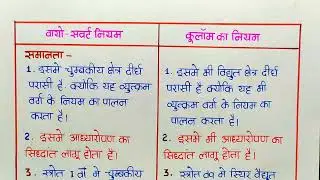 बायो-सवर्ट नियम
कूलॉम का नियम
समानता -
1. इसमे चुम्बकीय क्षेत्र दीर्घ
परासी है क्योंकि यह व्युत्क्रम
वर्ग के नियम का पालन
करता है।
2. इसमे अध्यारोपण का
सिध्दांत लागू होता है।
3. स्त्रोत I dl ने चुम्बकीय
1. इसमे भी विद्युत क्षेत्र दीर्घ
परासी है क्योंकि यह भी
व्युत्क्रम वर्ग के नियम का
पालन करता है।
2. इसमे भी अध्यारोपण का
सिध्दांत लागू होता है।
3. स्त्रोत dq ने स्थिर वैद्युत